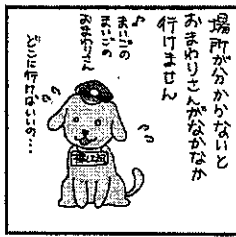 場所が分からないと
おまわりさんがなかなか
行けません
♪
まいごの
まいごの
おまわりさん
どこに行けばいいの…